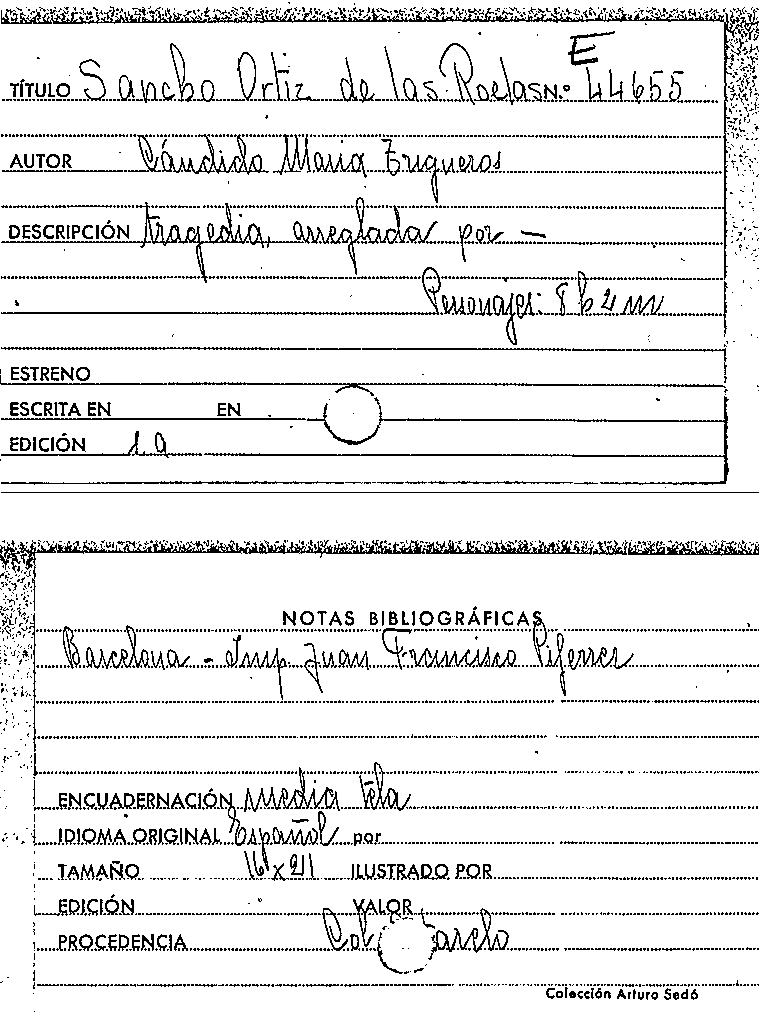 E
TÍTULO Sancho Ortiz de las Roelas N.º 44655
AUTOR Cándido María Trigueros
DESCRIPCIÓN tragedia, arreglada por —
Personajes: 8 h 2 m
ESTRENO
ESCRITA EN EN
EDICIÓN 1.a
NOTAS BIBLIOGRÁFICAS
Barcelona - Imp. Juan Francisco Piferrer
ENCUADERNACIÓN media tela
IDIOMA ORIGINAL Español por
TAMAÑO 16 x 21 ILUSTRADO POR
EDICIÓN VALOR
PROCEDENCIA Col
Colección Arturo Sedó